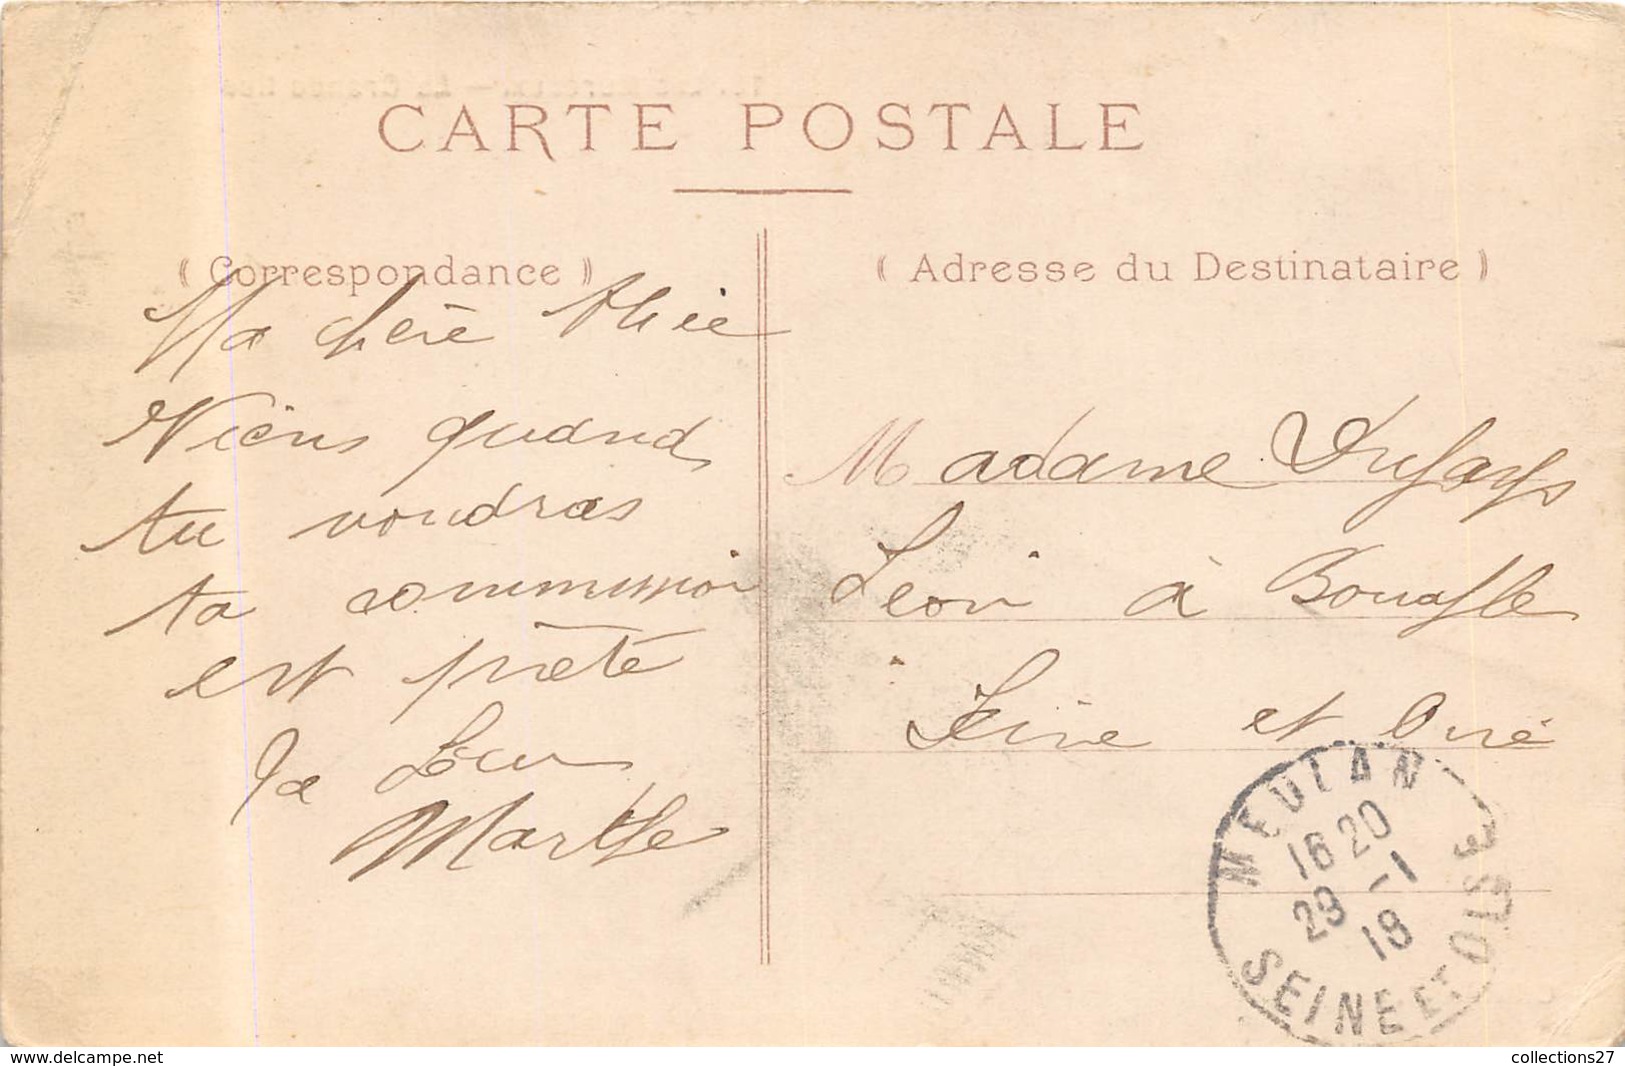 CARTE POSTALE
( Correspondance )
Ma chère Alice
Viens quand
tu voudras
ta commission
est prête
Ta Sœur
Marthe
( Adresse du Destinataire )
Madame Dufays
Léon à Bouafle
Seine et Oise
MEULAN
16 20
29 -1
18
SEINE ET OISE
collections27